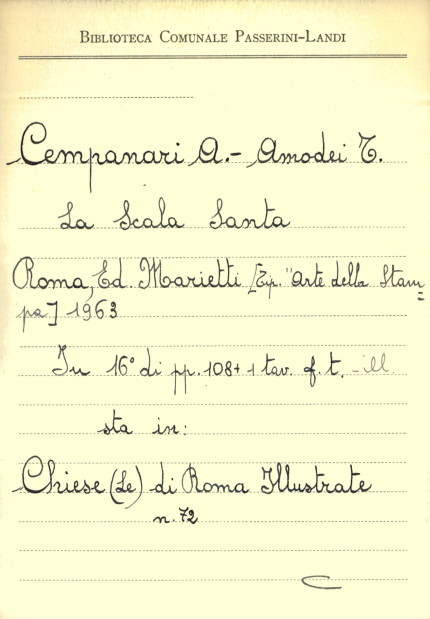 Biblioteca Comunale Passerini-Landi
Cempanari A.- Amodei T.
La Scala Santa
Roma, Ed. Marietti [Tip. "Arte della Stam=
pa] 1963
In 16° di pp. 108+1 tav. f. t. - ill.
sta in:
Chiese (Le) di Roma Illustrate
n. 72